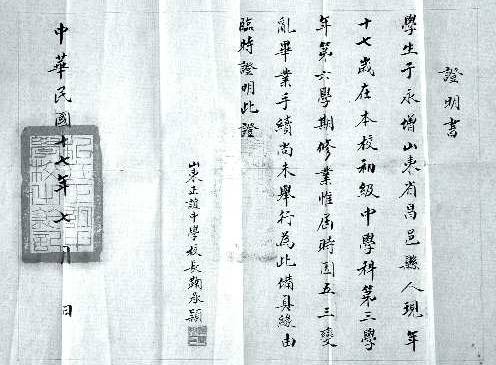 證明書
學生于永增山東省昌邑縣人現年
十七歲在本校初級中學科第三學
年第六學期修業惟屆時因五三變
亂畢業手續尚未舉行為此備具緣由
臨時證明此證
山東正誼中學校長鞠承穎
中華民國十七年七月 日